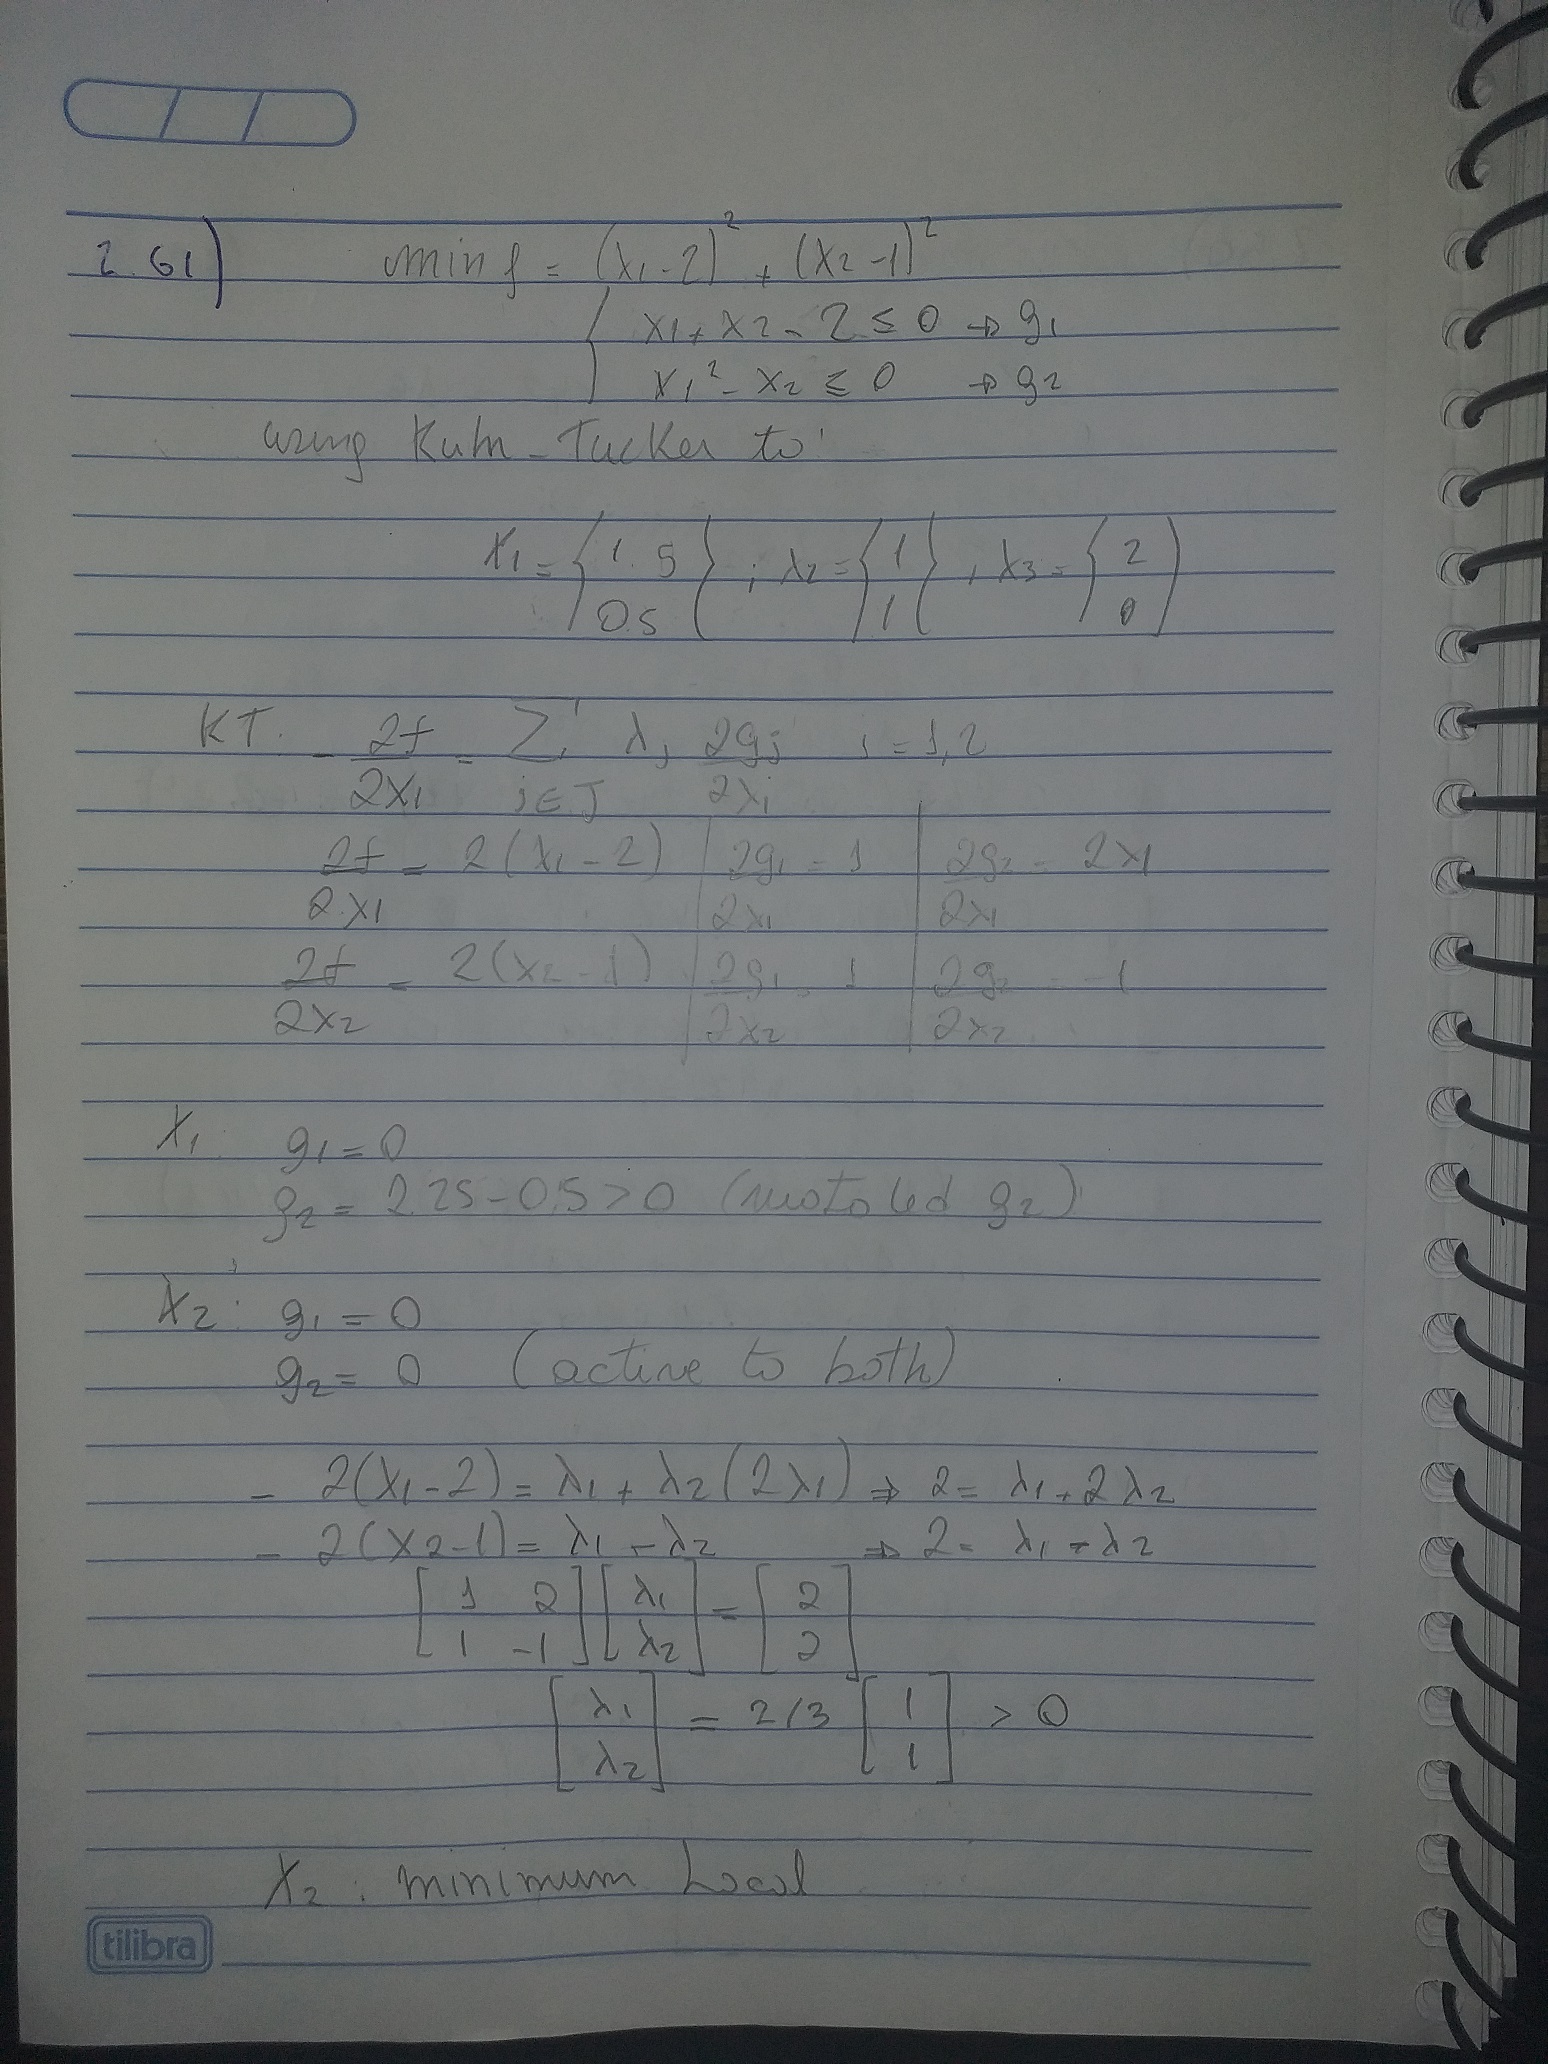 2.61) min f = (x1-2)² + (x2-1)²
x1 + x2 - 2 ≤ 0 → g1
x1² - x2 ≤ 0 → g2
using Kuhn-Tucker to:
X1 = {1.5 0.5} ; X2 = {1 1} , X3 = {2 0}
KT. - ∂f/∂x1 = Σ j∈J λj ∂gj/∂xi i = 1,2
∂f/∂x1 = 2(x1-2) | ∂g1/∂x1 = 1 | ∂g2/∂x1 = 2x1
∂f/∂x2 = 2(x2-1) | ∂g1/∂x2 = 1 | ∂g2/∂x2 = -1
X1: g1 = 0
g2 = 2.25 - 0.5 > 0 ( g2)
X2: g1 = 0
g2 = 0 (active to both)
- 2(x1-2) = λ1 + λ2(2x1) ⇒ 2 = λ1 + 2λ2
- 2(x2-1) = λ1 - λ2 ⇒ 2 = λ1 - λ2
[1 2
1 -1] [λ1 λ2] = [2 2]
[λ1 λ2] = 2/3 [1 1] > 0
X2: minimum Local
tilibra